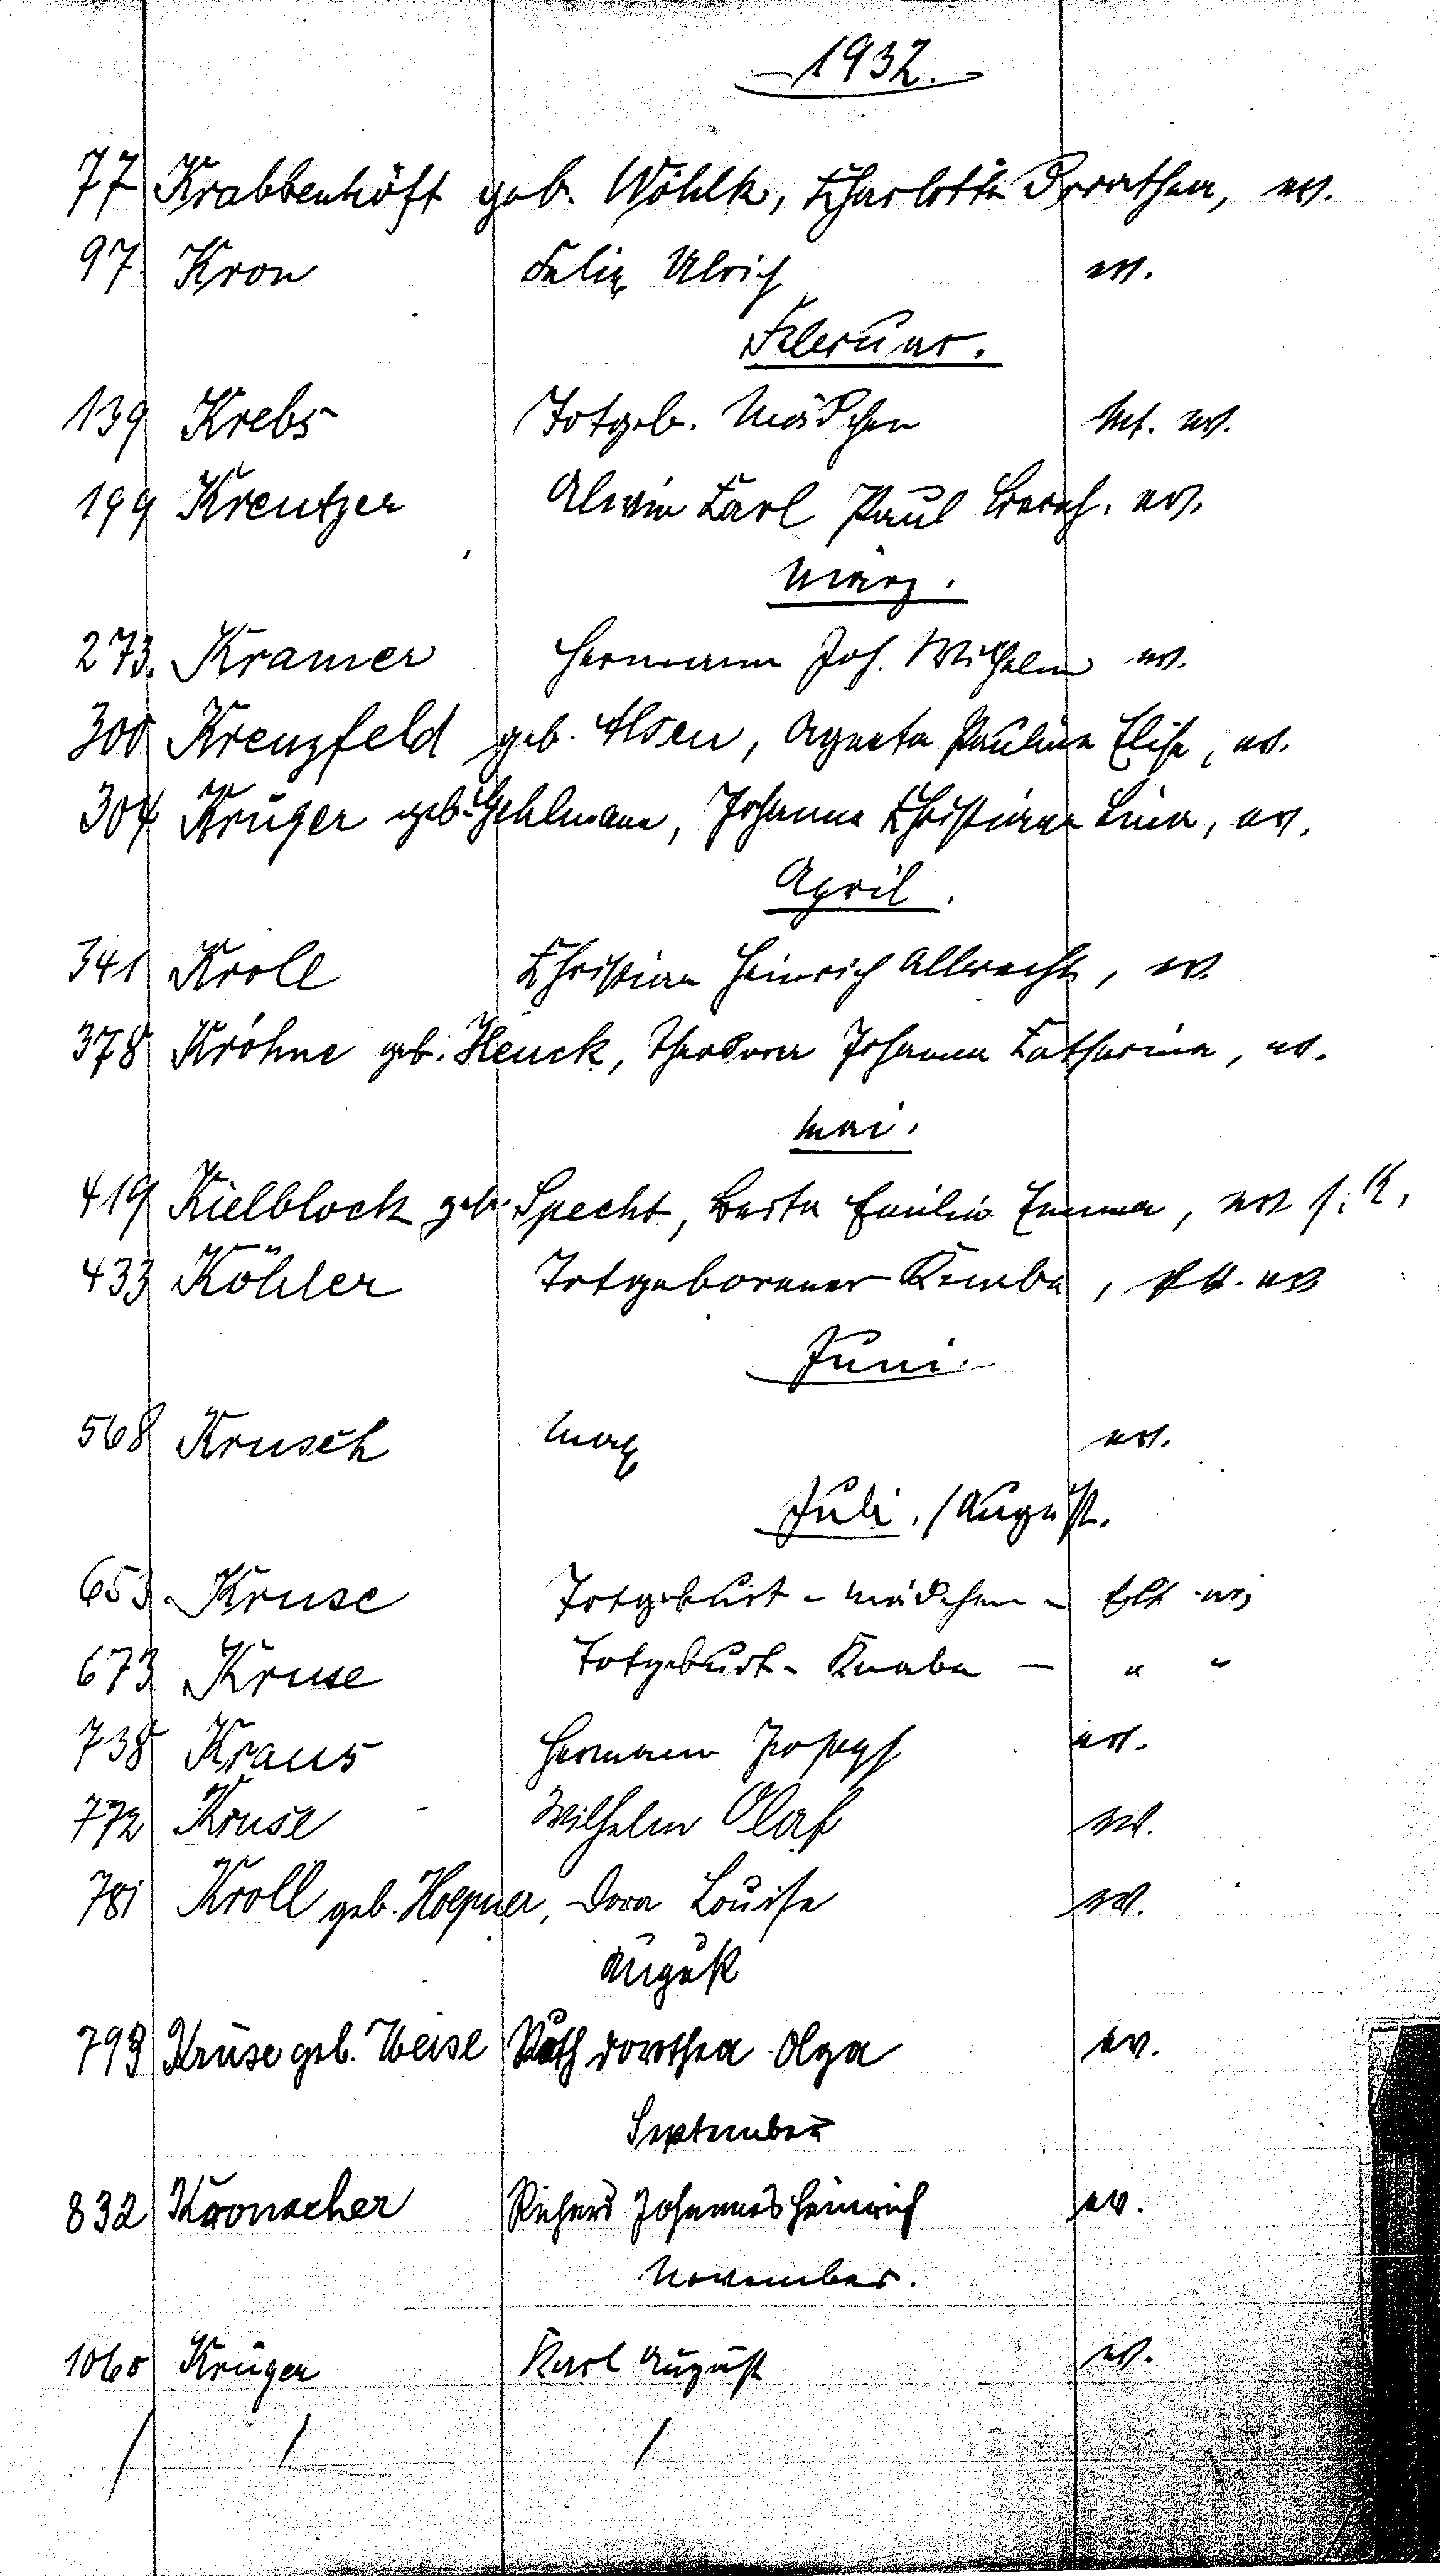 1932.
77 Krabbenhöft geb. Wöhlk, Charlotte Dorothea, ev.
97 Kron Felix Ulrich ev.
Februar.
139 Krebs Totgeb. Mädchen ev.
199 Kreutzer Alwin Karl Paul Bernh. ev.
März.
273. Kramer Hermann Joh. Wilhelm ev.
300 Kreuzfeld geb. Alsen, Agneta Pauline Elise, ev.
304 Krüger geb. Gehlmann, Johanna Christiane Lina, ev.
April.
341 Kroll Christian Heinrich Albrecht, ev.
378 Kröhne geb. Henck, Theodora Johanna Catharina, ev.
Mai.
419 Kielblock geb. Specht, Berta Emilie Emma, ev s. K.
433 Köhler Totgeborener Knabe, ev
Juni.
568 Krusch Max ev.
Juli. / August.
653 Kruse Totgeburt - Mädchen - ev
673 Kruse Totgeburt - Knabe - " "
738 Kraus Hermann Joseph ev.
772 Kruse Wilhelm Olaf ev.
781 Kroll geb. Hoepner, Dora Louise ev.
August
793 Kruse geb. Weise Ruth Dorothea Olga ev.
September
832 Kronacher Richard Johannes Heinrich ev.
November.
1060 Krüger Karl August ev.
/ / /